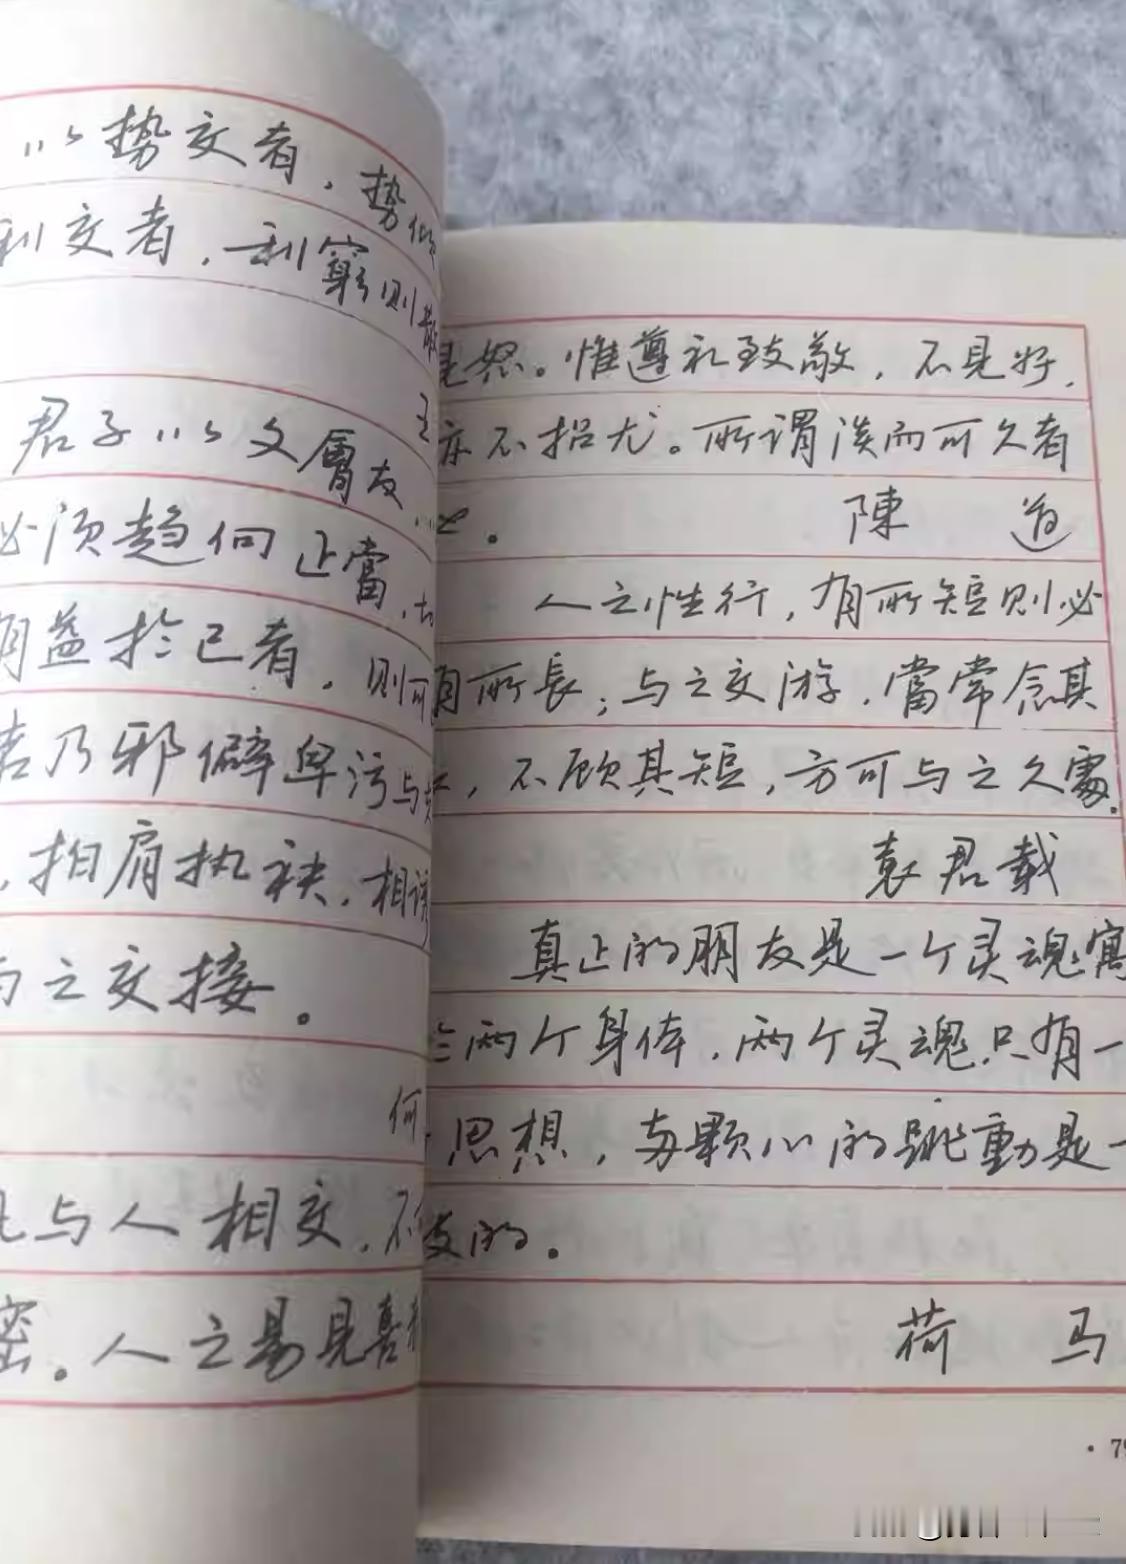 以势交者，势倾
利交者，利窮则散
王
君子以文會友，以
必须趋向正當，切
有益於己者，则可
若乃邪僻卑污与
，拍肩执袂，相
与之交接。
何
凡与人相交，不
密。人之易見喜
是怒。惟遵礼致敬，不見好，
亦不招尤。所谓淡而可久者
也。
陳 道
人之性行，有所短则必
有所長；与之交游，當常念其
，不顾其短，方可与之久處。
袁君载
真正的朋友是一个灵魂寓
於两个身体，两个灵魂只有一
思想，每颗心的跳動是一
致的。
荷 马
· 79